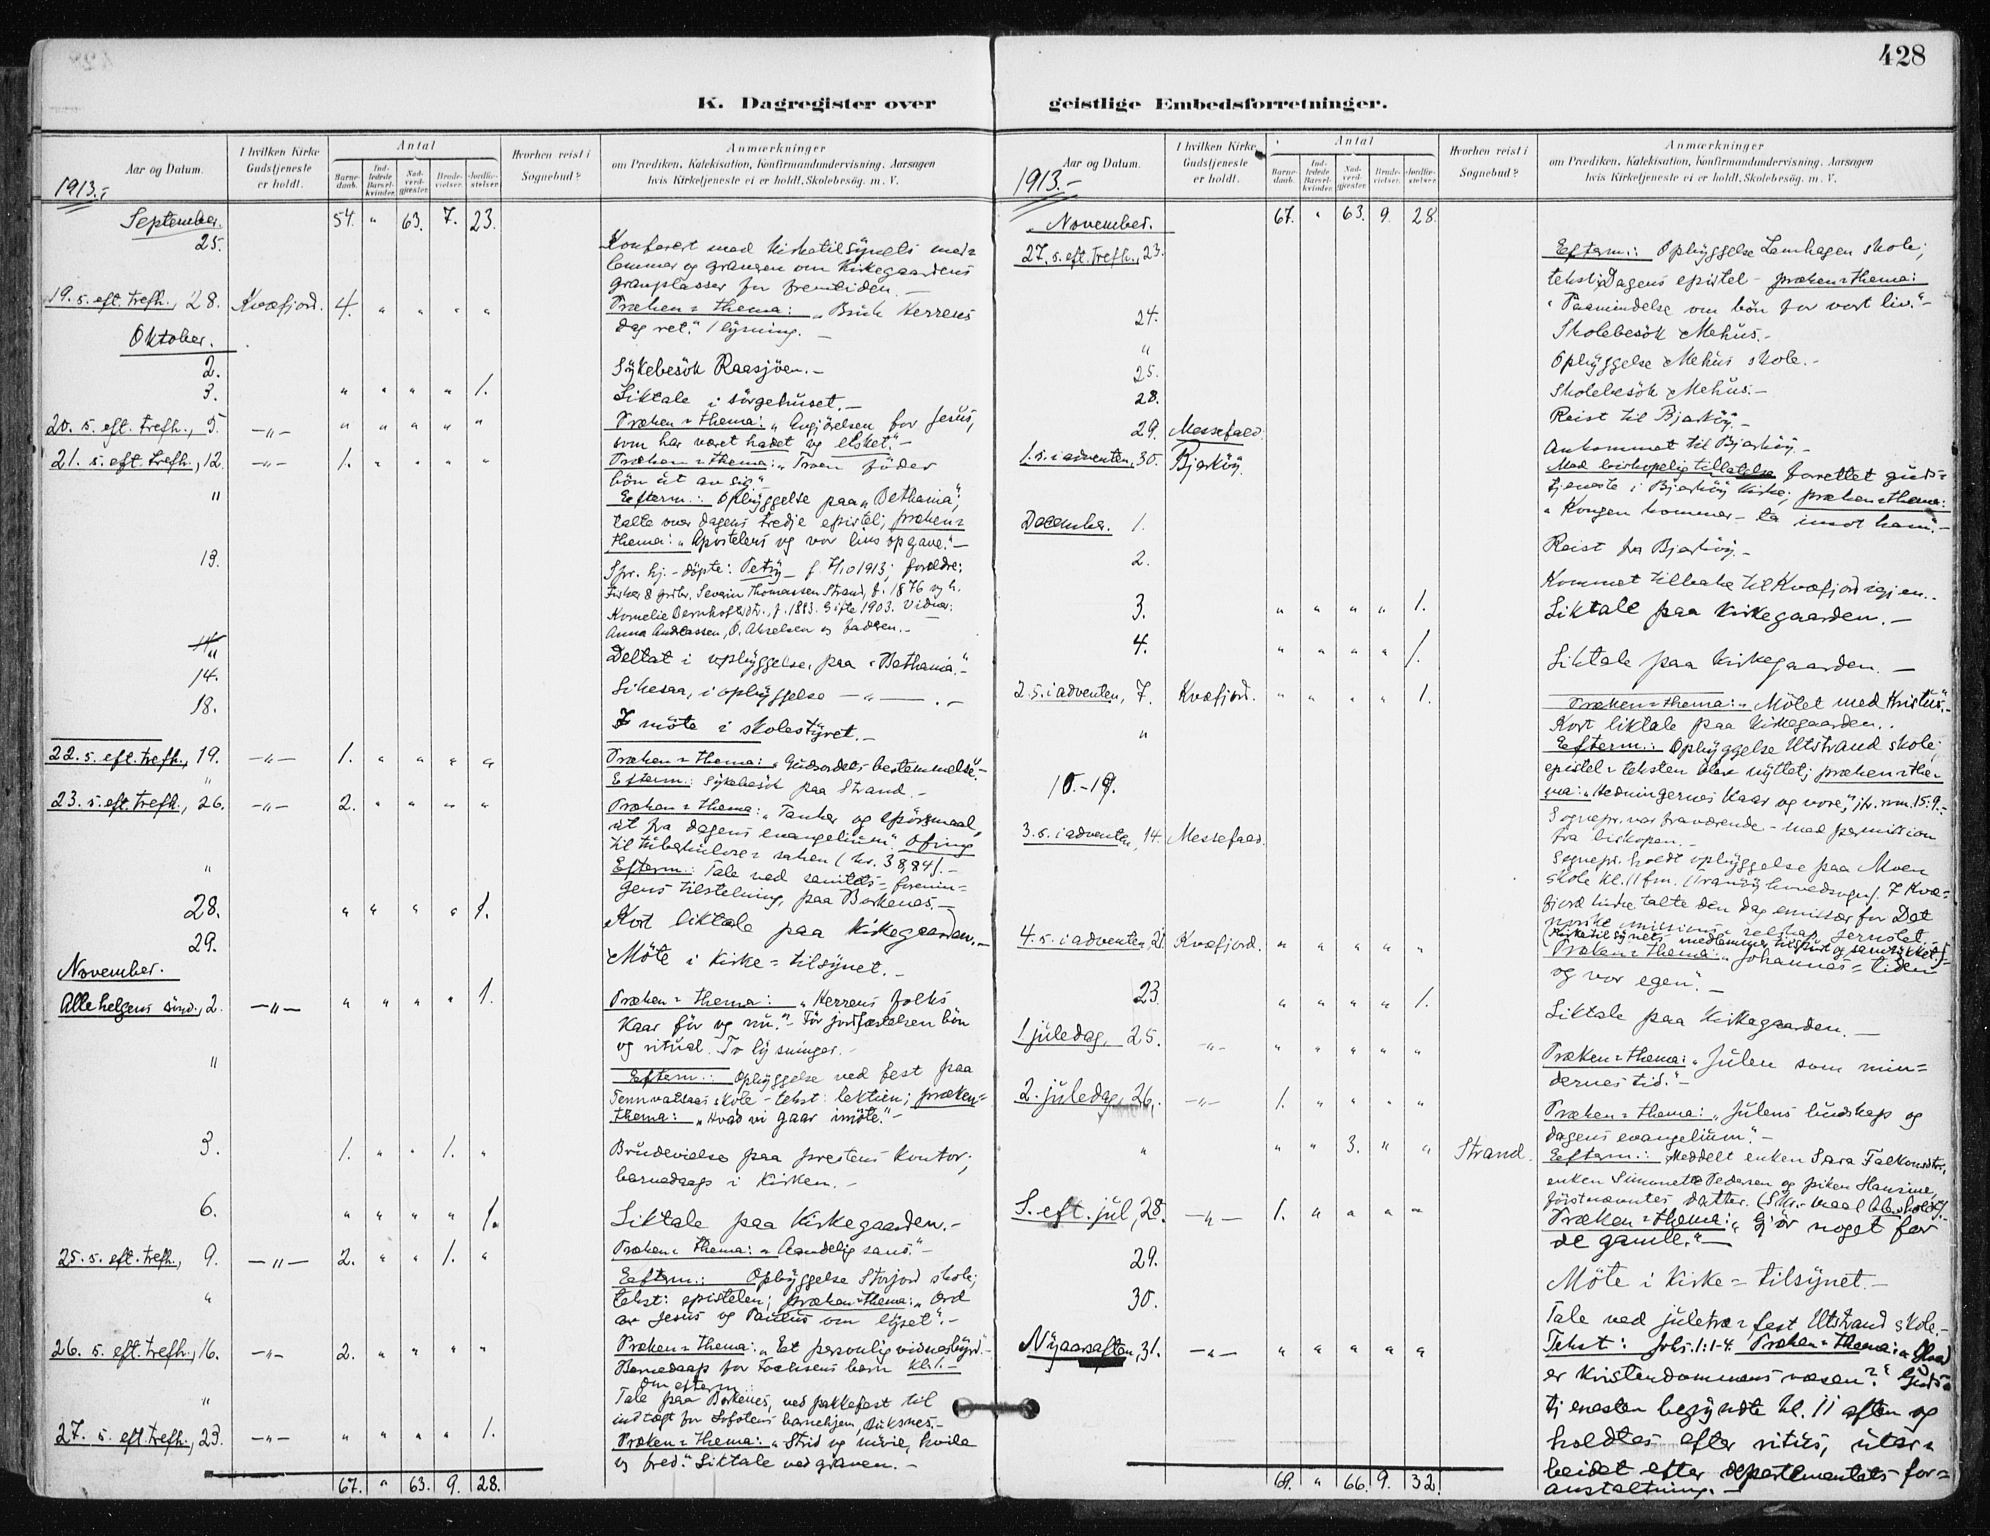 428
K. Dagregister over
geistlige Embedsforretninger.
Aar og Datum.
I hvilken Kirke
Gudstjeneste
er holdt.
Antal
Barne-
daab.
Ind-
ledede
Barsel-
kvinder.
Nad-
verd-
gjæster.
Brude-
vielser.
Jordfæ-
stelser.
Hvorhen reist i
Sognebud?
Anmærkninger
om Prædiken, Katekisation, Konfirmandundervisning, Aarsagen
hvis Kirketjeneste ei er holdt, Skolebesøg m. V.
1913.-
September. 54. " 63. 7. 23.
25. Konferert med kirketilsynets med-
lemmer og graveren om kirkegaardens
gravplasser for fremtiden. -
19. s. eft. trefh., 28. Kvæfjord. 4. " " " " Præken=thema: "Bruk Herrens
dag ret." 1 lysning. -
Oktober.
2. Sykebesök Raasjöen. -
3. " " " " 1. Liktale i sörgehuset. -
20. s. eft. trefh., 5. -"- " " " " " Præken=thema: "Avgjörelsen for Jesus,
som har været hadet og elsket." -
21. s. eft. trefh., 12. -"- 1. " " " " Præken=thema: "Troen föder
bön ut av sig."
" Efterm.: Opbyggelse paa "Bethania";
talte over dagens tredje epistel; præken=
thema: "Apostelens og vor livs opgave." -
13. Spr. hj.-döpte: Petry f. 7/10 1913; forældre:
Fisker & grdbr. Severin Thomassen Strand, f. 1876 og h.
Kornelie Bernhoftsdtr., f. 1883. Gifte 1903. Vidner:
Anna Andreassen, O. Akselsen og faderen. -
" Deltat i opbyggelse, paa "Bethania." -
14. Likesaa, i opbyggelse - " - . -
18. I möte i skolestyret. -
22. s. eft. trefh., 19. -"- 1. " " " " Præken=thema: "Gudsordets bestemmelse." -
" Efterm.: Sykebesök paa Strand. -
23. s. eft. trefh., 26. -"- 2. " " " " Præken=thema: "Tanker og spörsmaal,
ut fra dagens evangelium". Ofring
til tuberkulose=saken (kr. 38,84). -
" Efterm.: Tale ved sanitets=forenin-
gens tilstelning, paa Borkenes. -
28. " " " " 1. Kort liktale paa kirkegaarden. -
29. Möte i kirke=tilsynet. -
November.
Alle helgens sönd., 2. -"- " " " " 1. Præken=thema: "Herrens folks
kaar för og nu." - För jordfæstelsen bön
og ritual. To lysninger. -
" Efterm.: Opbyggelse ved fest paa
skole - tekst: lektien; præken=
thema: "Hvad vi gaar imöte." -
3. 1. " " 1. " Brudevielse paa prestens kontor;
barnedaap i kirken. -
6. " " " " 1. Liktale paa kirkegaarden. -
25. s. eft. trefh., 9. -"- 2. " " 1. " Præken=thema: "Aandelig sans." -
" Efterm.: Opbyggelse Storjord skole;
tekst: epistelen; præken=thema: "Ord
av Jesus og Paulus om lyset". -
26. s. eft. trefh., 16. -"- 2. " " " " Præken=thema: "Et personlig vidnesbyrd." -
Barnedaap for barn kl. 1. -
om efterm.
" Tale paa Borkenes, ved pakkefest til
indtægt for Lofotens barnehjem, Buksnes. -
27. s. eft. trefh., 23. -"- " " " " 1. Præken=thema: "Strid og hvile
og fred." Liktale ved graven. -
67. " 63. 9. 28.
Aar og Datum.
I hvilken Kirke
Gudstjeneste
er holdt.
Antal
Barne-
daab.
Ind-
ledede
Barsel-
kvinder.
Nad-
verd-
gjæster.
Brude-
vielser.
Jordfæ-
stelser.
Hvorhen reist i
Sognebud?
Anmærkninger
om Prædiken, Katekisation, Konfirmandundervisning, Aarsagen
hvis Kirketjeneste ei er holdt, Skolebesøg m. V.
1913.-
November. 67. " 63. 9. 28.
27. s. eft. trefh., 23. Efterm.: Opbyggelse Langhagen skole;
tekst: Dagens epistel - præken=thema:
"Paamindelse om bön for vort liv." -
24. Skolebesök Mehus. -
" Opbyggelse Mehus skole. -
25. Skolebesök Mehus. -
28. Reist til Bjarköy. -
29. Messefald. Ankommet til Bjarköy. -
1. s. i adventen, 30. Bjarköy. Med biskopelig tillatelse forrettet guds=
tjeneste i Bjarköy kirke; præken=thema:
"Kongen kommer - ta imot ham." -
December. 1. Reist fra Bjarköy. -
2. Kommet tilbake til Kvæfjord igjen. -
3. " " " " 1. Liktale paa kirkegaarden. -
4. " " " " 1. Liktale paa kirkegaarden. -
2. s. i adventen, 7. Kvæfjord. " " " " 1. Præken=thema: "Mötet med Kristus." -
Kort liktale paa kirkegaarden. -
" Efterm.: Opbyggelse Utstrand skole;
epistel=teksten blev nyttet; præken=the-
ma: "Hedningernes kaar og vore," jfr. rom. 15. 9. -
10.-19. Sognepr. var fraværende - med permission
fra biskopen. -
3. s. i adventen, 14. Messefald. Sognepr. holdt opbyggelse paa Moen
skole kl. 11 fm. (Tranöy hovedsogn). I Kvæ=
fjord kirke talte den dag emissær for Det
norske misions=selskap Jernstet. -
(Kirketilsynets medlemmer tilspurt og samtykket). -
4. s. i adventen, 21. Kvæfjord. " " " " " Præken=thema: "Johannes=tiden
og vor egen." -
23. " " " " 1. Liktale paa kirkegaarden. -
1. juledag, 25. -"- " " " " " Præken=thema: "Julen som min=
dernes tid." -
2. juledag, 26. -"- 1. " " " " Præken=thema: "Julens budskap og
dagens evangelium." -
" " " 3. " " Strand. Efterm.: Meddelt enken Sara Falkonsdtr.,
enken Simonette Pedersen og piken Hansine,
förstnævntes datter.
S. eft. jul, 28. -"- 1. " " " " Præken=thema: "Gjör noget for
de gamle." -
29. Möte i kirke=tilsynet. -
30. Tale ved juletræ=fest Utstrand skole. -
Nyaarsaften, 31. -"- " " " " " Tekst: Johs. 1:1-4. Præken=thema: "Hvad
er kristendommens væsen?" Guds=
tjenesten begyndte kl. 11 aften og
holdtes efter ritus, utar=
beidet efter departementets for=
anstaltning. -
69. " 66. 9. 32.